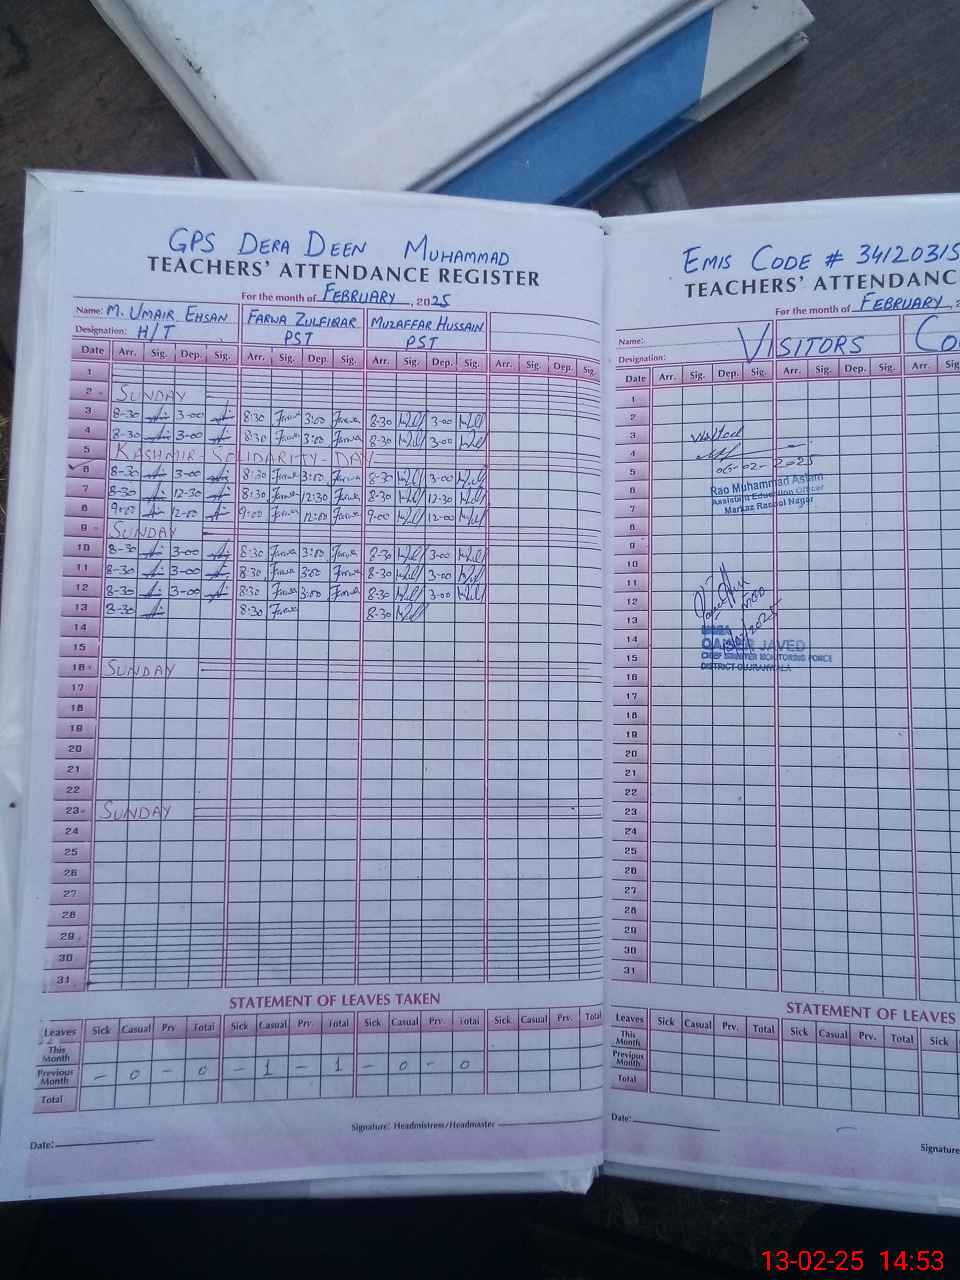 GPS DERA DEEN MUHAMMAD
TEACHERS' ATTENDANCE REGISTER
For the month of FEBRUARY, 2025
Name: M. UMAIR EHSAN FARWA ZULFIQAR MUZAFFAR HUSSAIN
Designation: H/T PST PST
Date Arr. Sig. Dep. Sig. Arr. Sig. Dep. Sig. Arr. Sig. Dep. Sig. Arr. Sig. Dep. Sig.
1
2 SUNDAY
3 8-30 3-00 8:30 Farwa 3:00 Farwa 8-30 3-00
4 8-30 3-00 8:30 Farwa 3:00 Farwa 8-30 3-00
5 KASHMIR-SOLIDARITY-DAY
6 8-30 3-00 8:30 Farwa 3:00 Farwa 8-30 3-00
7 8-30 12-30 8:30 Farwa 12:30 Farwa 8-30 12-30
8 9:00 12-00 9:00 Farwa 12:00 Farwa 9-00 12-00
9 SUNDAY
10 8-30 3-00 8:30 Farwa 3:00 Farwa 8-30 3-00
11 8-30 3-00 8:30 Farwa 3:00 Farwa 8-30 3-00
12 8-30 3-00 8:30 Farwa 3:00 Farwa 8-30 3-00
13 8-30 8:30 Farwa 8-30
14
15
16 SUNDAY
17
18
19
20
21
22
23 SUNDAY
24
25
26
27
28
29
30
31
STATEMENT OF LEAVES TAKEN
Leaves Sick Casual Prv. Total Sick Casual Prv. Total Sick Casual Prv. Total Sick Casual Prv. Total
This Month
Previous Month - 0 - 0 - 1 - 1 - 0 - 0
Total
Signature: Headmistress/Headmaster
Date:
EMIS CODE # 34120315
TEACHERS' ATTENDANC
For the month of FEBRUARY, 2
Name: VISITORS CO
Designation:
Date Arr. Sig. Dep. Sig. Arr. Sig. Dep. Sig. Arr. Sig.
1
2
3
4
5
06-02-2025
6
Rao Muhammad Aslam
Assistant Education Officer
7
Markaz Rasool Nagar
8
9
10
11
12
13
14
QAISER JAVED
15
CHIEF MINISTER MONITORING FORCE
DISTRICT GUJRANWALA
16
17
18
19
20
21
22
23
24
25
26
27
28
29
30
31
STATEMENT OF LEAVES
Leaves Sick Casual Prv. Total Sick Casual Prv. Total Sick
This Month
Previous Month
Total
Date:
Signature
13-02-25 14:53